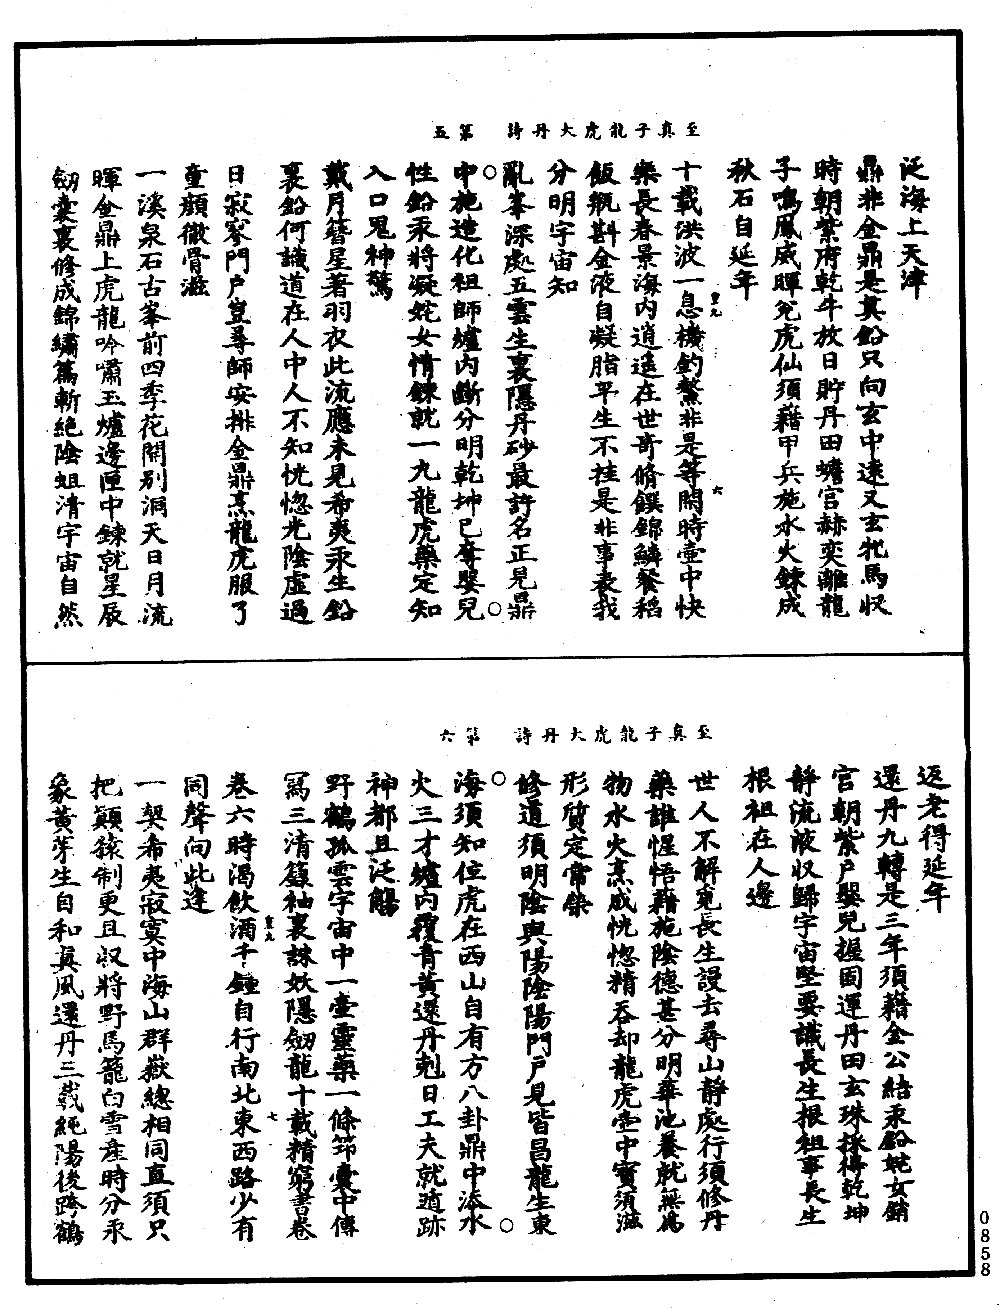 至真子龍虎大丹詩　第五
泛海上天津
鼎非金鼎是真鉛只向玄中達又玄牝馬収
時朝紫府乾牛放日貯丹田蟾宮赫奕離龍
子鳴鳳威暉兊虎仙須藉甲兵施水火鍊成
秋石自延年
十載洪波一息機釣鰲非是等閑時壷中快
樂長春景海内逍遥在世奇脩饌錦鱗餐稻
飯瓶斟金液自凝脂平生不挂是非事表我
分明宇宙知
亂峯深處五雲生裏隱丹砂最許名正見鼎
中施造化祖師爐内斷分明乾坤已奪嬰兒
性鉛汞將凝姹女情鍊就一九龍虎藥定知
入口鬼神驚
戴月簪星著羽衣此流應未見希夷汞生鉛
裏鉛何識道在人中人不知恍惚光陰虛過
日寂寥門戶豈尋師安排金鼎烹龍虎服了
童顏徹骨滋
一溪泉石古峯前四季花開别洞天日月流
暉金鼎上虎龍吟嘯玉爐邊匣中鍊就星辰
劒囊裏修成錦繡篇斬絶陰蛆清宇宙自然
皇九
六
至真子龍虎大丹詩　第六
返老得延年
還丹九轉是三年須藉金公結汞鉛姹女銷
宮朝紫戸嬰兒握固運丹田玄珠採得乾坤
靜流液収歸宇宙堅要識長生根祖事長生
根祖在人邊
世人不解覓長生謾去尋山靜處行須修丹
藥誰惺悟藉施陰德甚分明華池養就無爲
物水火烹成恍惚精吞却龍虎壷中寳須滋
形質定常榮
修道須明陰與陽陰陽門戸見皆昌龍生東
海須知位虎在西山自有方八卦鼎中添水
火三才爐内覆青黄還丹剋日工夫就遁跡
神都且泛觴
野鶴孤雲宇宙中一壷靈藥一條笻囊中傳
寫三清籙袖裏誅妖隱劒龍十載精窮書巻
卷六時渴飲酒千鍾自行南北東西路少有
同聲向此逢
一契希夷寂寞中海山群嶽總相同直須只
把顛猿制更且収將野馬籠白雪産時分汞
象黄芽生自和真風還丹三載純陽後跨鶴
皇九
七
0858